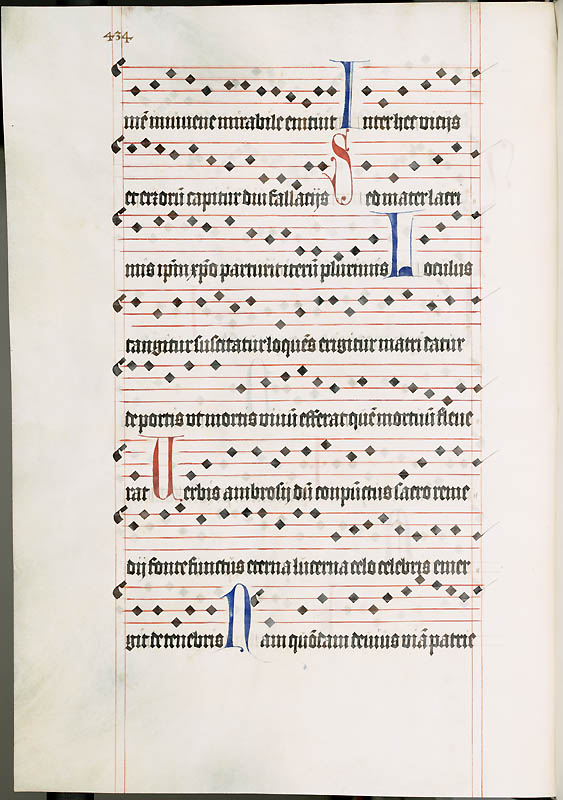 434
mẽ inuuene mirabile enituit Inter hec vicijs
et errorũ capitur diu fallacijs Sed mater lacri
mis ip̃m xp̃o parturit iterũ plurimis Loculus
tangitur suscitatur loquẽs erigitur matri datur
de portis vt mortis viuũ efferat quẽ mortuũ fleue
rat Uerbis ambrosij dũ conpũctus sacro reme
dij fonte functus eterna lucerna celo celebris emer
git de tenebris Nam quõdam deuius viã patrie